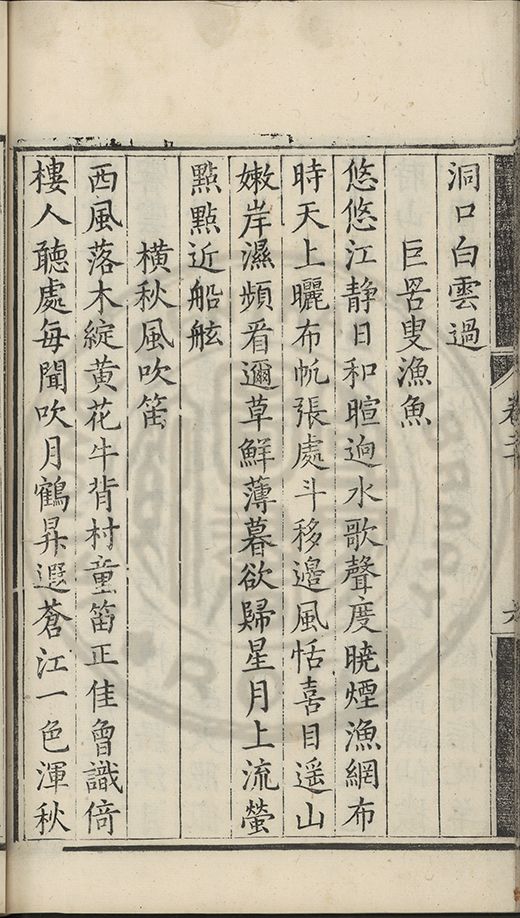 洞口白雲過
巨罟叟漁魚
悠悠江静日和暄逈水歌聲度曉煙漁網布
時天上曬布帆張處斗移邉風恬喜目遥山
嫩岸濕頻看邇草鮮薄暮欲歸星月上流螢
點點近船舷
橫秋風吹笛
西風落木綻黄花牛背村童笛正佳曾識倚
樓人聽處每聞吹月鶴昇遐蒼江一色渾秋